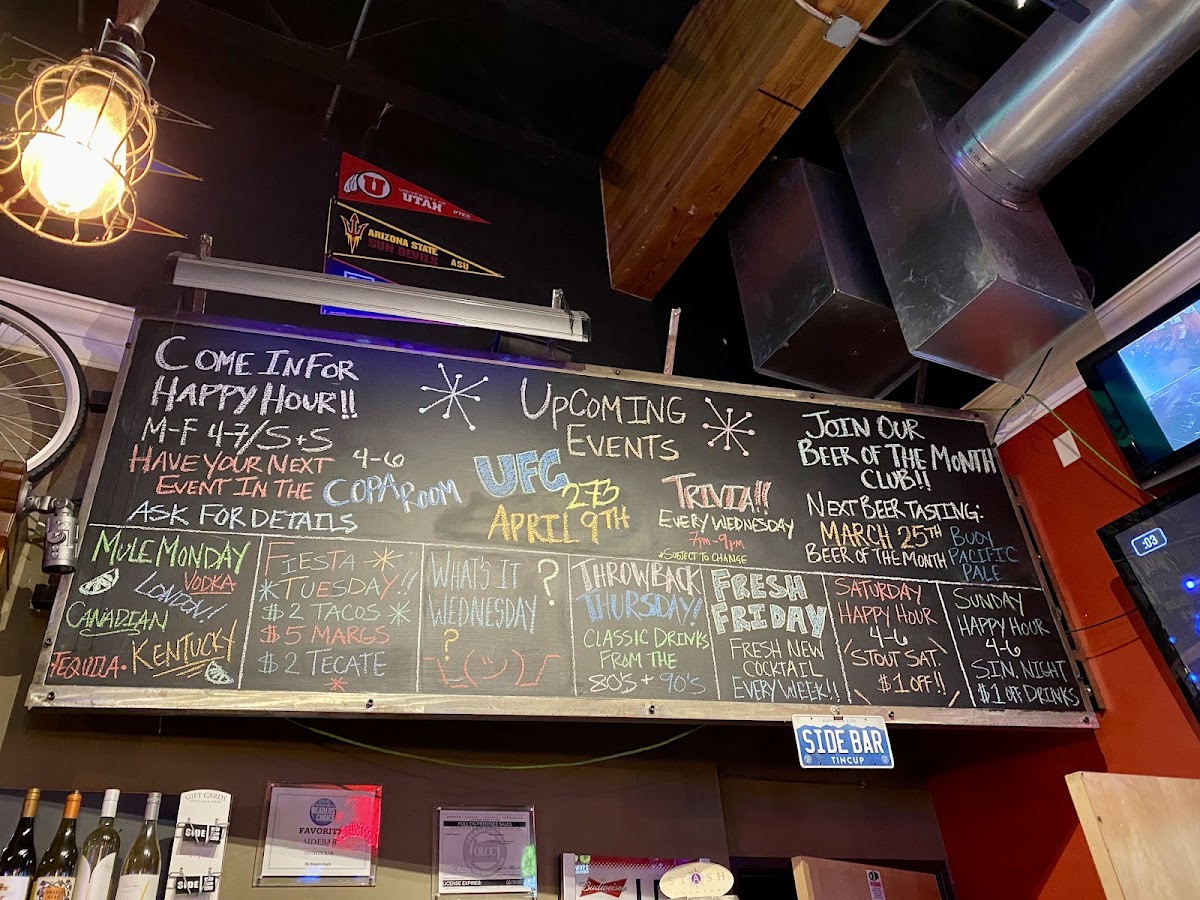 U
UNIVERSITY OF
UTAH
UTES
ARIZONA STATE
SUN DEVILS
ASU
COME IN FOR
HAPPY HOUR!!
M-F 4-7/S+S
4-6
HAVE YOUR NEXT
EVENT IN THE COPA ROOM
ASK FOR DETAILS
UPCOMING
EVENTS
UFC
273
APRIL 9TH
TRIVIA!!
EVERY WEDNESDAY
7PM-9PM
*SUBJECT TO CHANGE
JOIN OUR
BEER OF THE MONTH
CLUB!!
NEXT BEER TASTING:
MARCH 25TH
BEER OF THE MONTH
BUOY
PACIFIC
PALE
MULE MONDAY
VODKA
LONDON!
CANADIAN
KENTUCKY
TEQUILA.
FIESTA
TUESDAY!!
$2 TACOS
$5 MARGS
$2 TECATE
WHAT'S IT ?
WEDNESDAY
?
THROWBACK
THURSDAY!
CLASSIC DRINKS
FROM THE
80'S + 90'S
FRESH
FRIDAY
FRESH NEW
COCKTAIL
EVERY WEEK!!
SATURDAY
HAPPY HOUR
4-6
STOUT SAT.
$1 OFF!!
SUNDAY
HAPPY HOUR
4-6
S.I.N. NIGHT
$1 OFF DRINKS
:03
SIDE BAR
TINCUP
GIFT CARDS
SIDE
SIDE
READERS'
CHOICE
FAVORITE
SIDEBAR
SPORTS BAR
FULL ON-PREMISES SALES
OLCC
LICENSE EXPIRES:
Budweiser
STASH